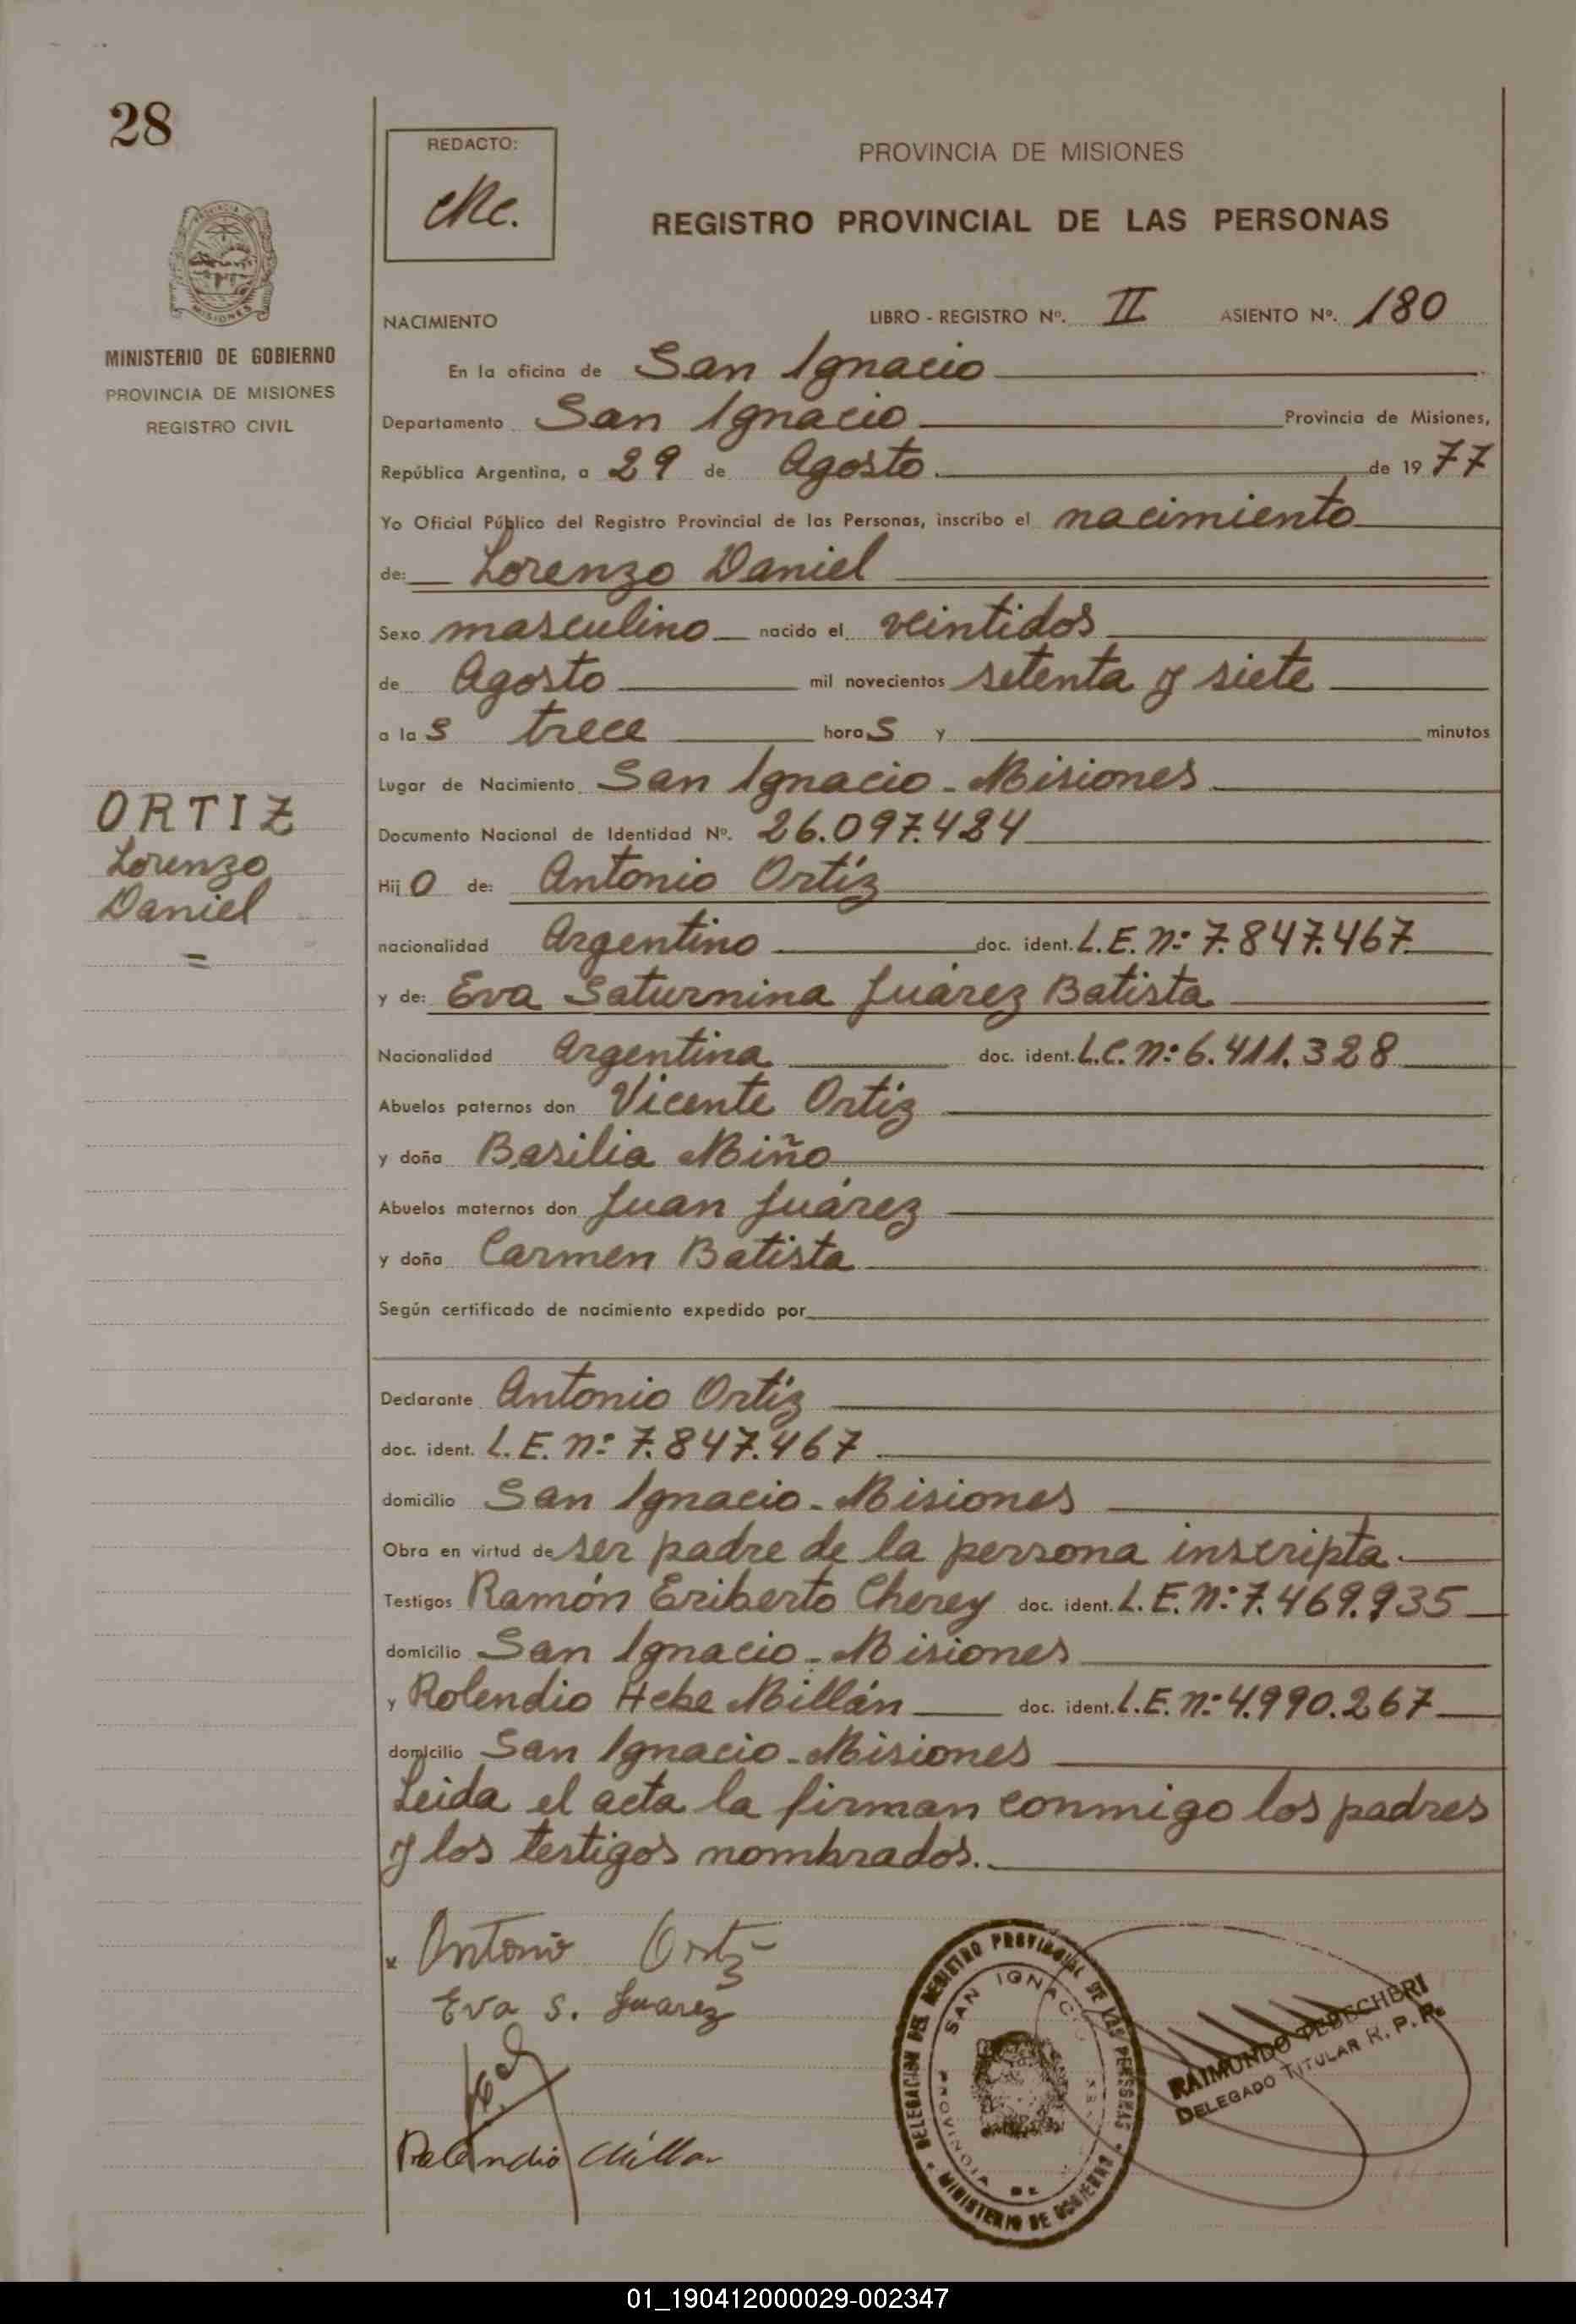 28
REDACTO:
PROVINCIA DE MISIONES
REGISTRO PROVINCIAL DE LAS PERSONAS
MINISTERIO DE GOBIERNO
PROVINCIA DE MISIONES
REGISTRO CIVIL
NACIMIENTO LIBRO - REGISTRO Nº. II ASIENTO Nº. 180
En la oficina de San Ignacio
Departamento San Ignacio Provincia de Misiones,
República Argentina, a 29 de Agosto de 1977
Yo Oficial Público del Registro Provincial de las Personas, inscribo el nacimiento
de: Lorenzo Daniel
Sexo masculino nacido el veintidos
de Agosto mil novecientos setenta y siete
a las trece horas y minutos
Lugar de Nacimiento San Ignacio - Misiones
ORTIZ
Lorenzo
Daniel
Documento Nacional de Identidad Nº. 26.097.484
Hijo de: Antonio Ortíz
nacionalidad Argentino doc. ident. L.E. nº 7.847.467
y de: Eva Saturnina Juárez Batista
Nacionalidad Argentina doc. ident. L.C. nº 6.411.328
Abuelos paternos don Vicente Ortiz
y doña Basilia Miño
Abuelos maternos don Juan Juárez
y doña Carmen Batista
Según certificado de nacimiento expedido por
Declarante Antonio Ortiz
doc. ident. L.E. nº 7.847.467
domicilio San Ignacio - Misiones
Obra en virtud de ser padre de la persona inscripta.
Testigos Ramón Eriberto Cherey doc. ident. L.E. nº 7.469.935
domicilio San Ignacio - Misiones
y Rolendio Hebe Millán doc. ident. L.E. nº 4.990.267
domicilio San Ignacio - Misiones
Leida el acta la firman conmigo los padres
y los testigos nombrados.
x Antonio Ortiz
Eva S. Juarez
Rolendio Millan
DELEGACION DEL REGISTRO PROVINCIAL DE LAS PERSONAS
SAN IGNACIO
PROVINCIA DE
MINISTERIO DE GOBIERNO
RAIMUNDO TEDESCHERI
DELEGADO TITULAR R. P. P.
01_190412000029-002347